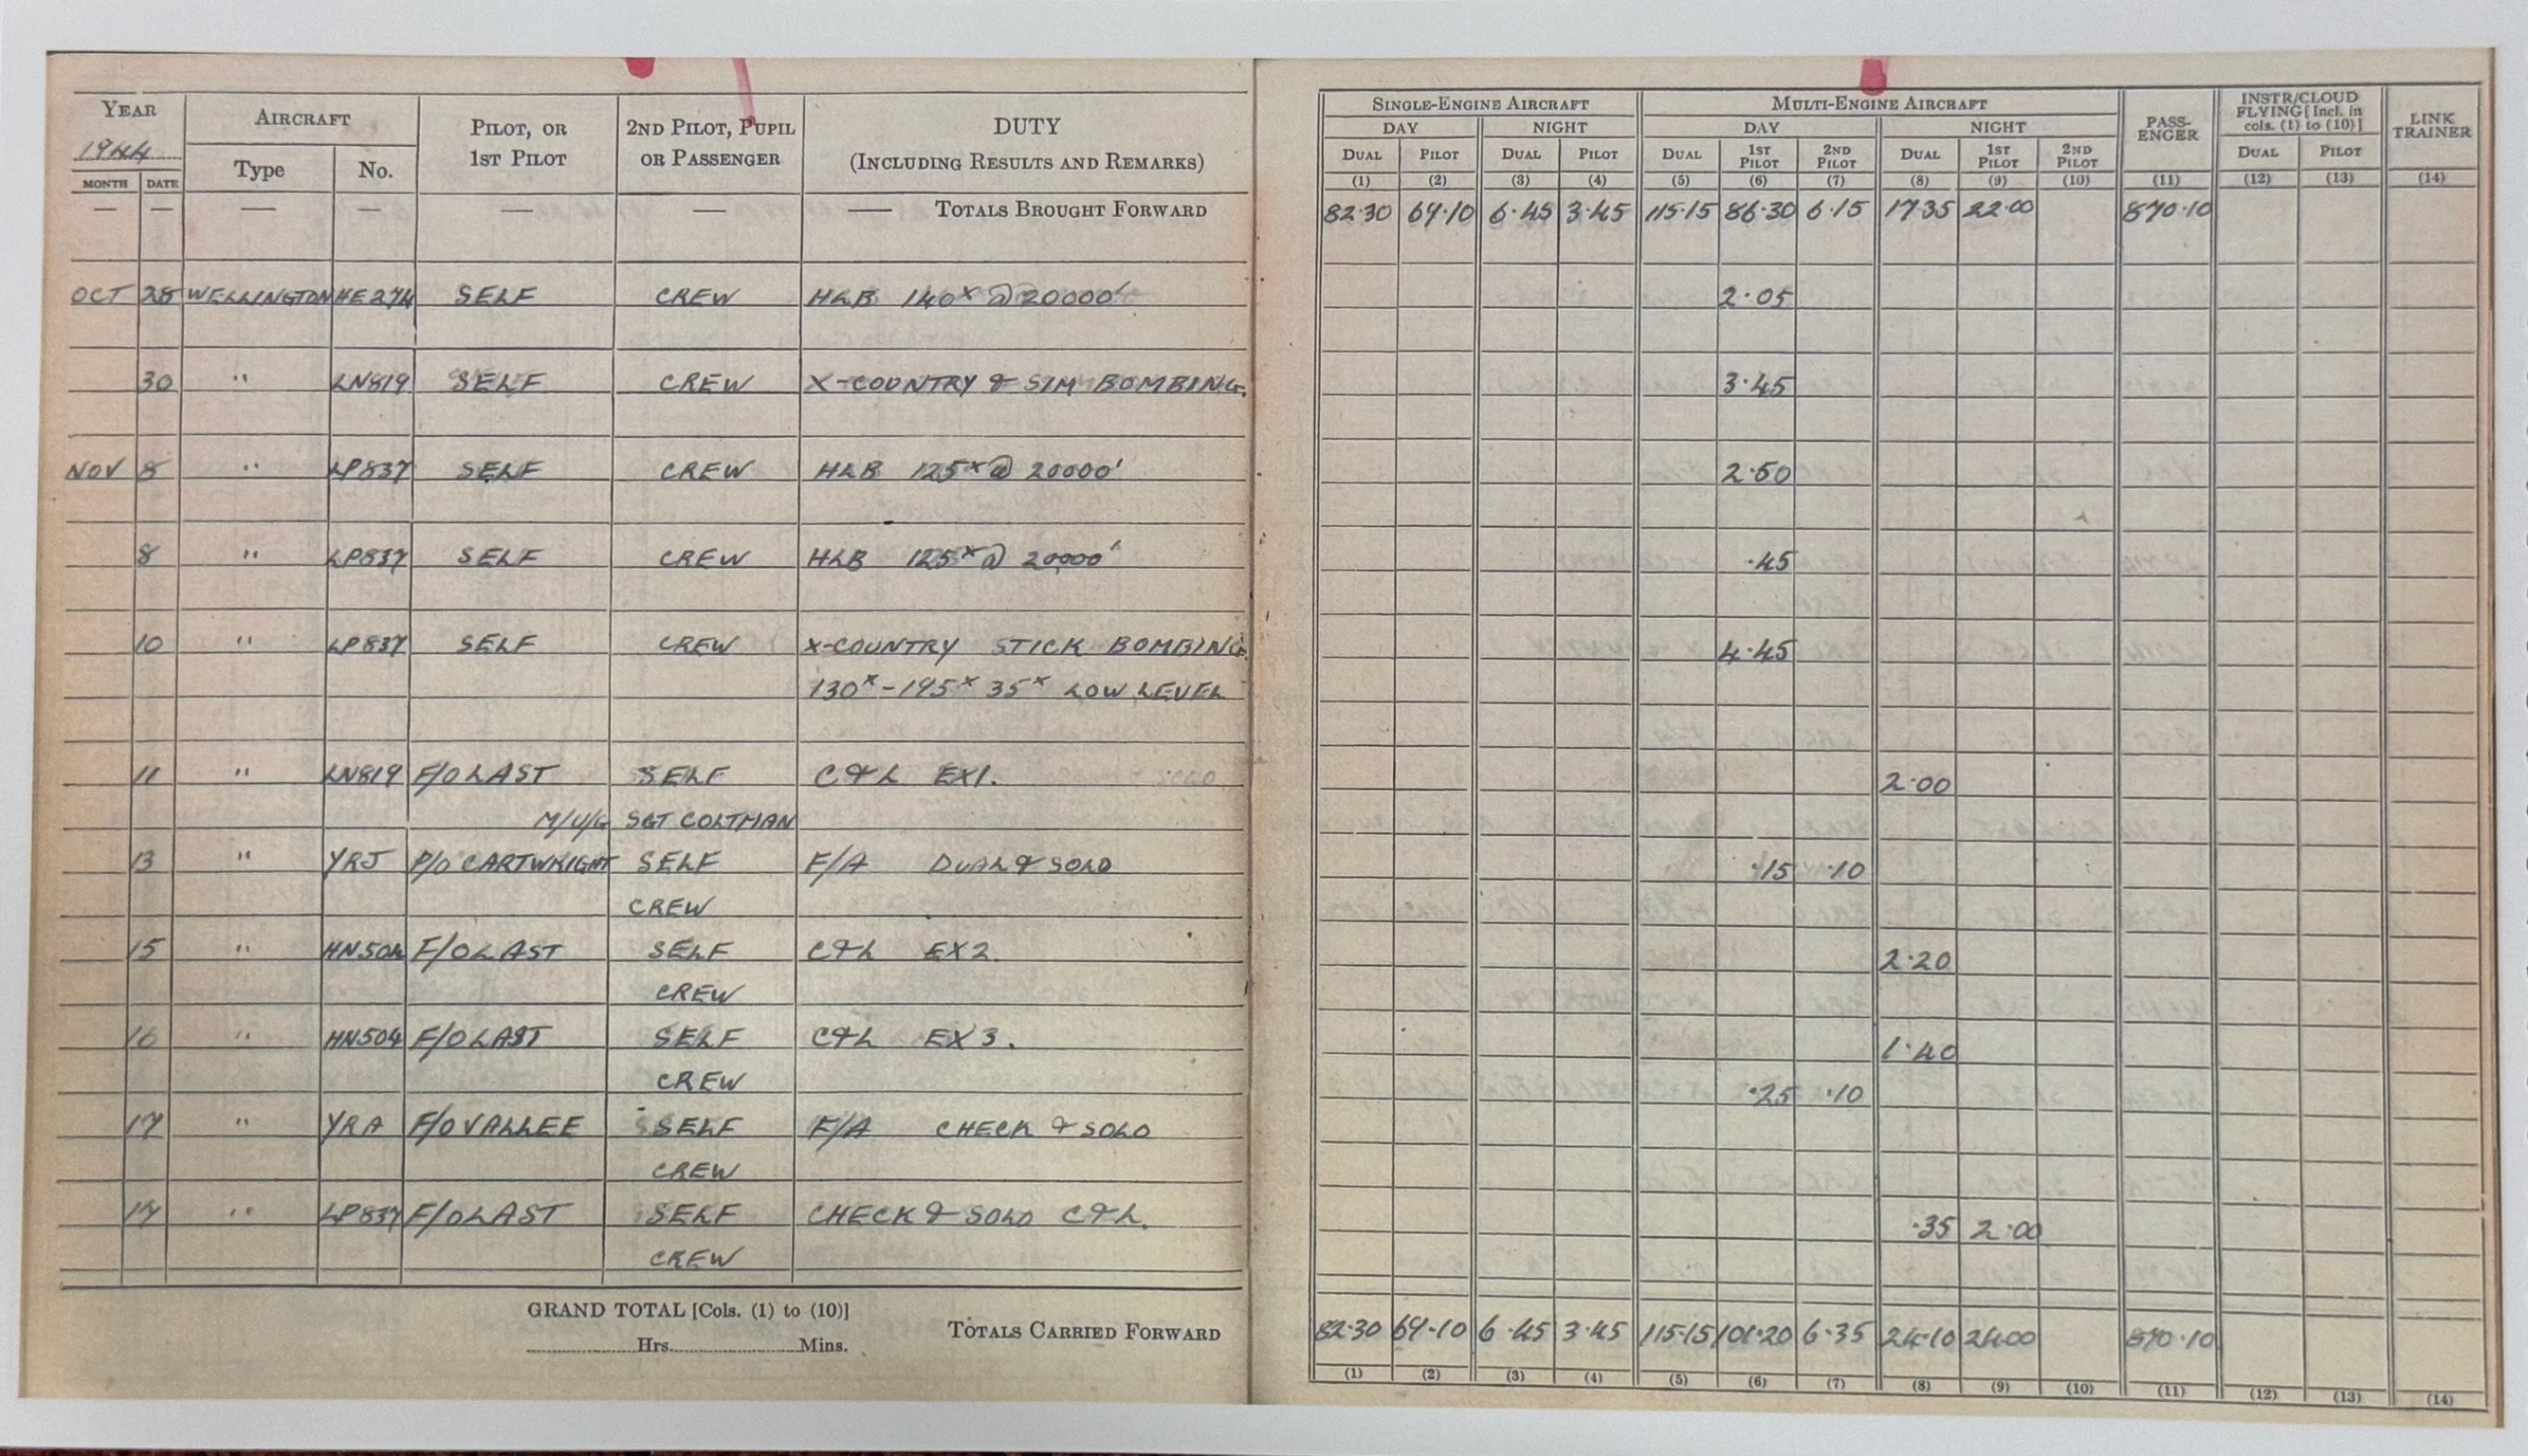 YEAR 1944 AIRCRAFT PILOT, OR 1ST PILOT 2ND PILOT, PUPIL OR PASSENGER DUTY (INCLUDING RESULTS AND REMARKS)
MONTH DATE Type No.
SINGLE-ENGINE AIRCRAFT MULTI-ENGINE AIRCRAFT PASS-ENGER INSTR/CLOUD FLYING [Incl. in cols. (1) to (10)] LINK TRAINER
DAY NIGHT DAY NIGHT
DUAL PILOT DUAL PILOT DUAL 1ST PILOT 2ND PILOT DUAL 1ST PILOT 2ND PILOT DUAL PILOT
(1) (2) (3) (4) (5) (6) (7) (8) (9) (10) (11) (12) (13) (14)
— — — — — — — TOTALS BROUGHT FORWARD 82.30 64.10 6.45 3.45 115.15 86.30 6.15 17.35 22.00 870.10
OCT 28 WELLINGTON HE274 SELF CREW HLB 140x @ 20000' 2.05
30 " LN819 SELF CREW X-COUNTRY & SIM BOMBING. 3.45
NOV 8 " LP837 SELF CREW HLB 125x @ 20000' 2.50
8 " LP837 SELF CREW HLB 125x @ 20000' .45
10 " LP837 SELF CREW X-COUNTRY STICK BOMBING 4.45
130x-195x 35x LOW LEVEL
11 " LN819 F/O LAST SELF C&L EX1. 2.00
M/U/G SGT COLTMAN
13 " YRJ P/O CARTWRIGHT SELF F/A DUAL & SOLO .15 .10
CREW
15 " HN504 F/O LAST SELF C&L EX2. 2.20
CREW
16 " HN504 F/O LAST SELF C&L EX3. 1.40
CREW
17 " YRA F/O VALLEE SELF F/A CHECK & SOLO .25 .10
CREW
17 " LP837 F/O LAST SELF CHECK & SOLO C&L. .35 2.00
CREW
GRAND TOTAL [Cols. (1) to (10)]
Hrs. Mins.
TOTALS CARRIED FORWARD 82.30 64.10 6.45 3.45 115.15 101.20 6.35 24.10 24.00 870.10
(1) (2) (3) (4) (5) (6) (7) (8) (9) (10) (11) (12) (13) (14)